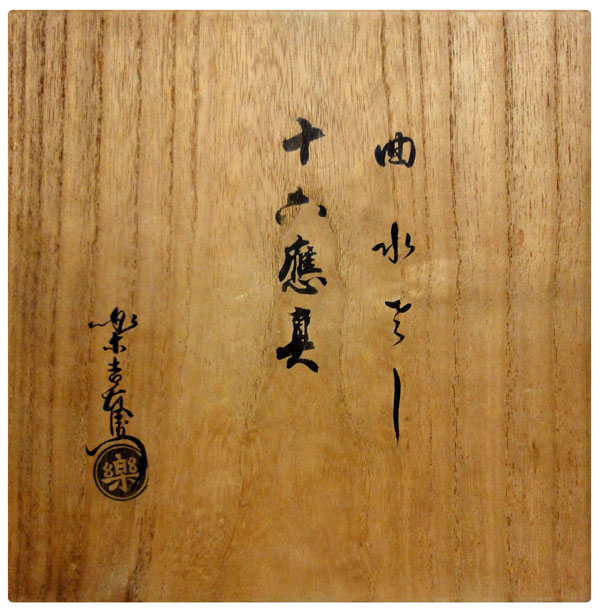 曲水
十六應真
樂吉左衛門
樂